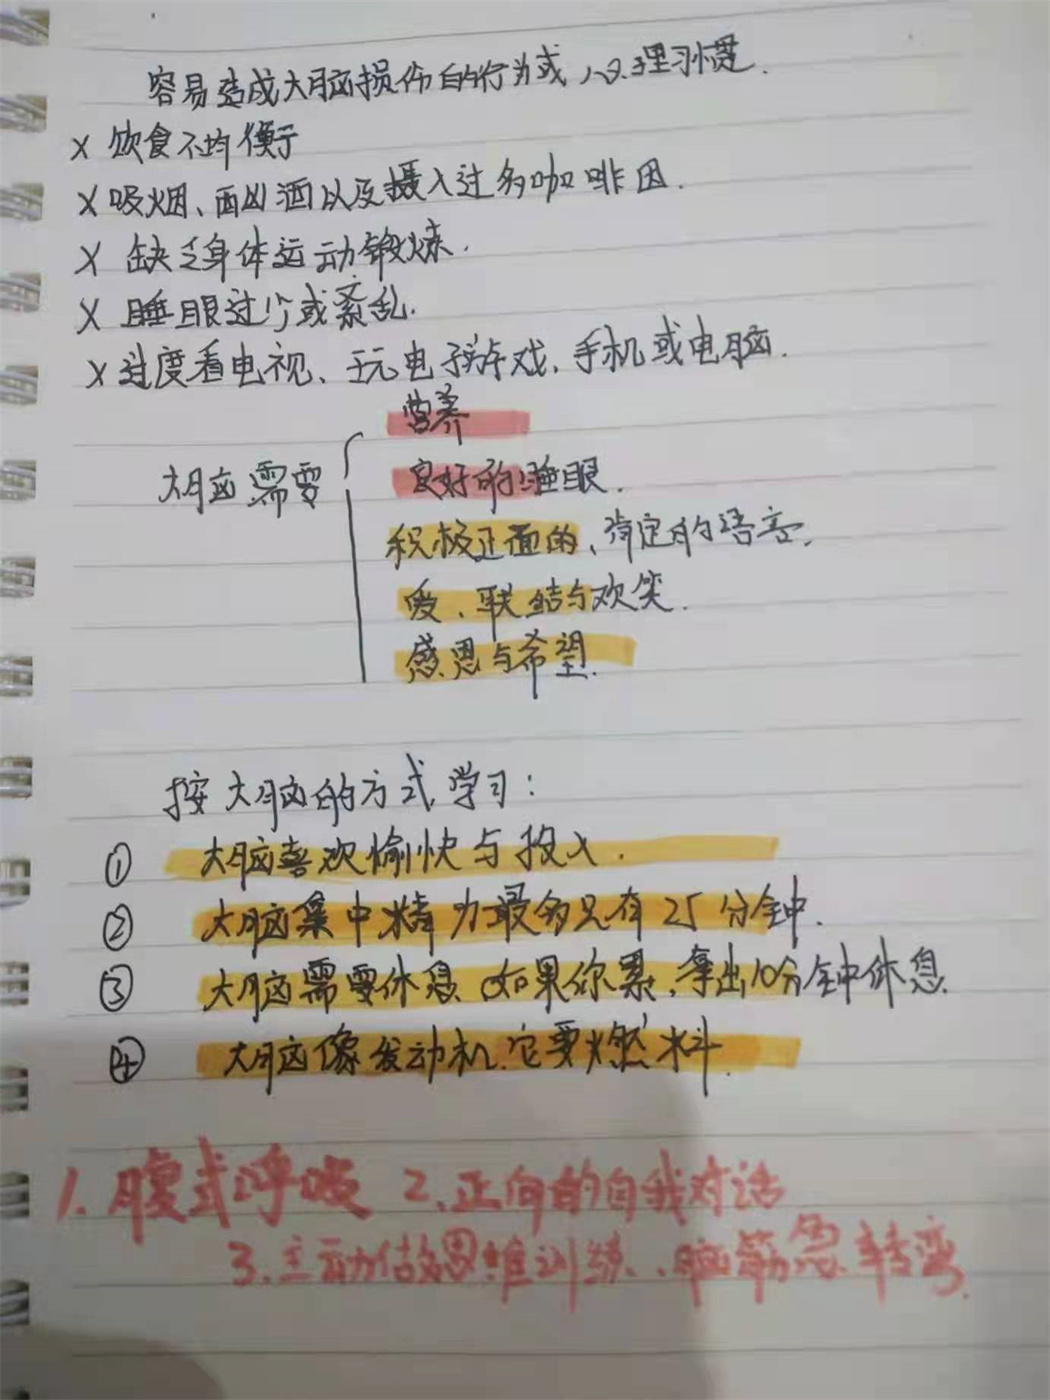 容易造成大脑损伤的行为或心理习惯.
X 饮食不均衡
X 吸烟、酗酒以及摄入过多咖啡因.
X 缺乏身体运动锻炼.
X 睡眠过少或紊乱.
X 过度看电视、玩电子游戏、手机或电脑.
营养
大脑需要
良好的睡眠.
积极正面的、肯定的语言.
爱、联结与欢笑.
感恩与希望.
按大脑的方式学习:
① 大脑喜欢愉快与投入.
② 大脑集中精力最多只有25分钟.
③ 大脑需要休息.如果你累,拿出10分钟休息.
④ 大脑像发动机.它要燃料.
1.腹式呼吸 2.正向的自我对话
3.主动做思维训练、脑筋急转弯.